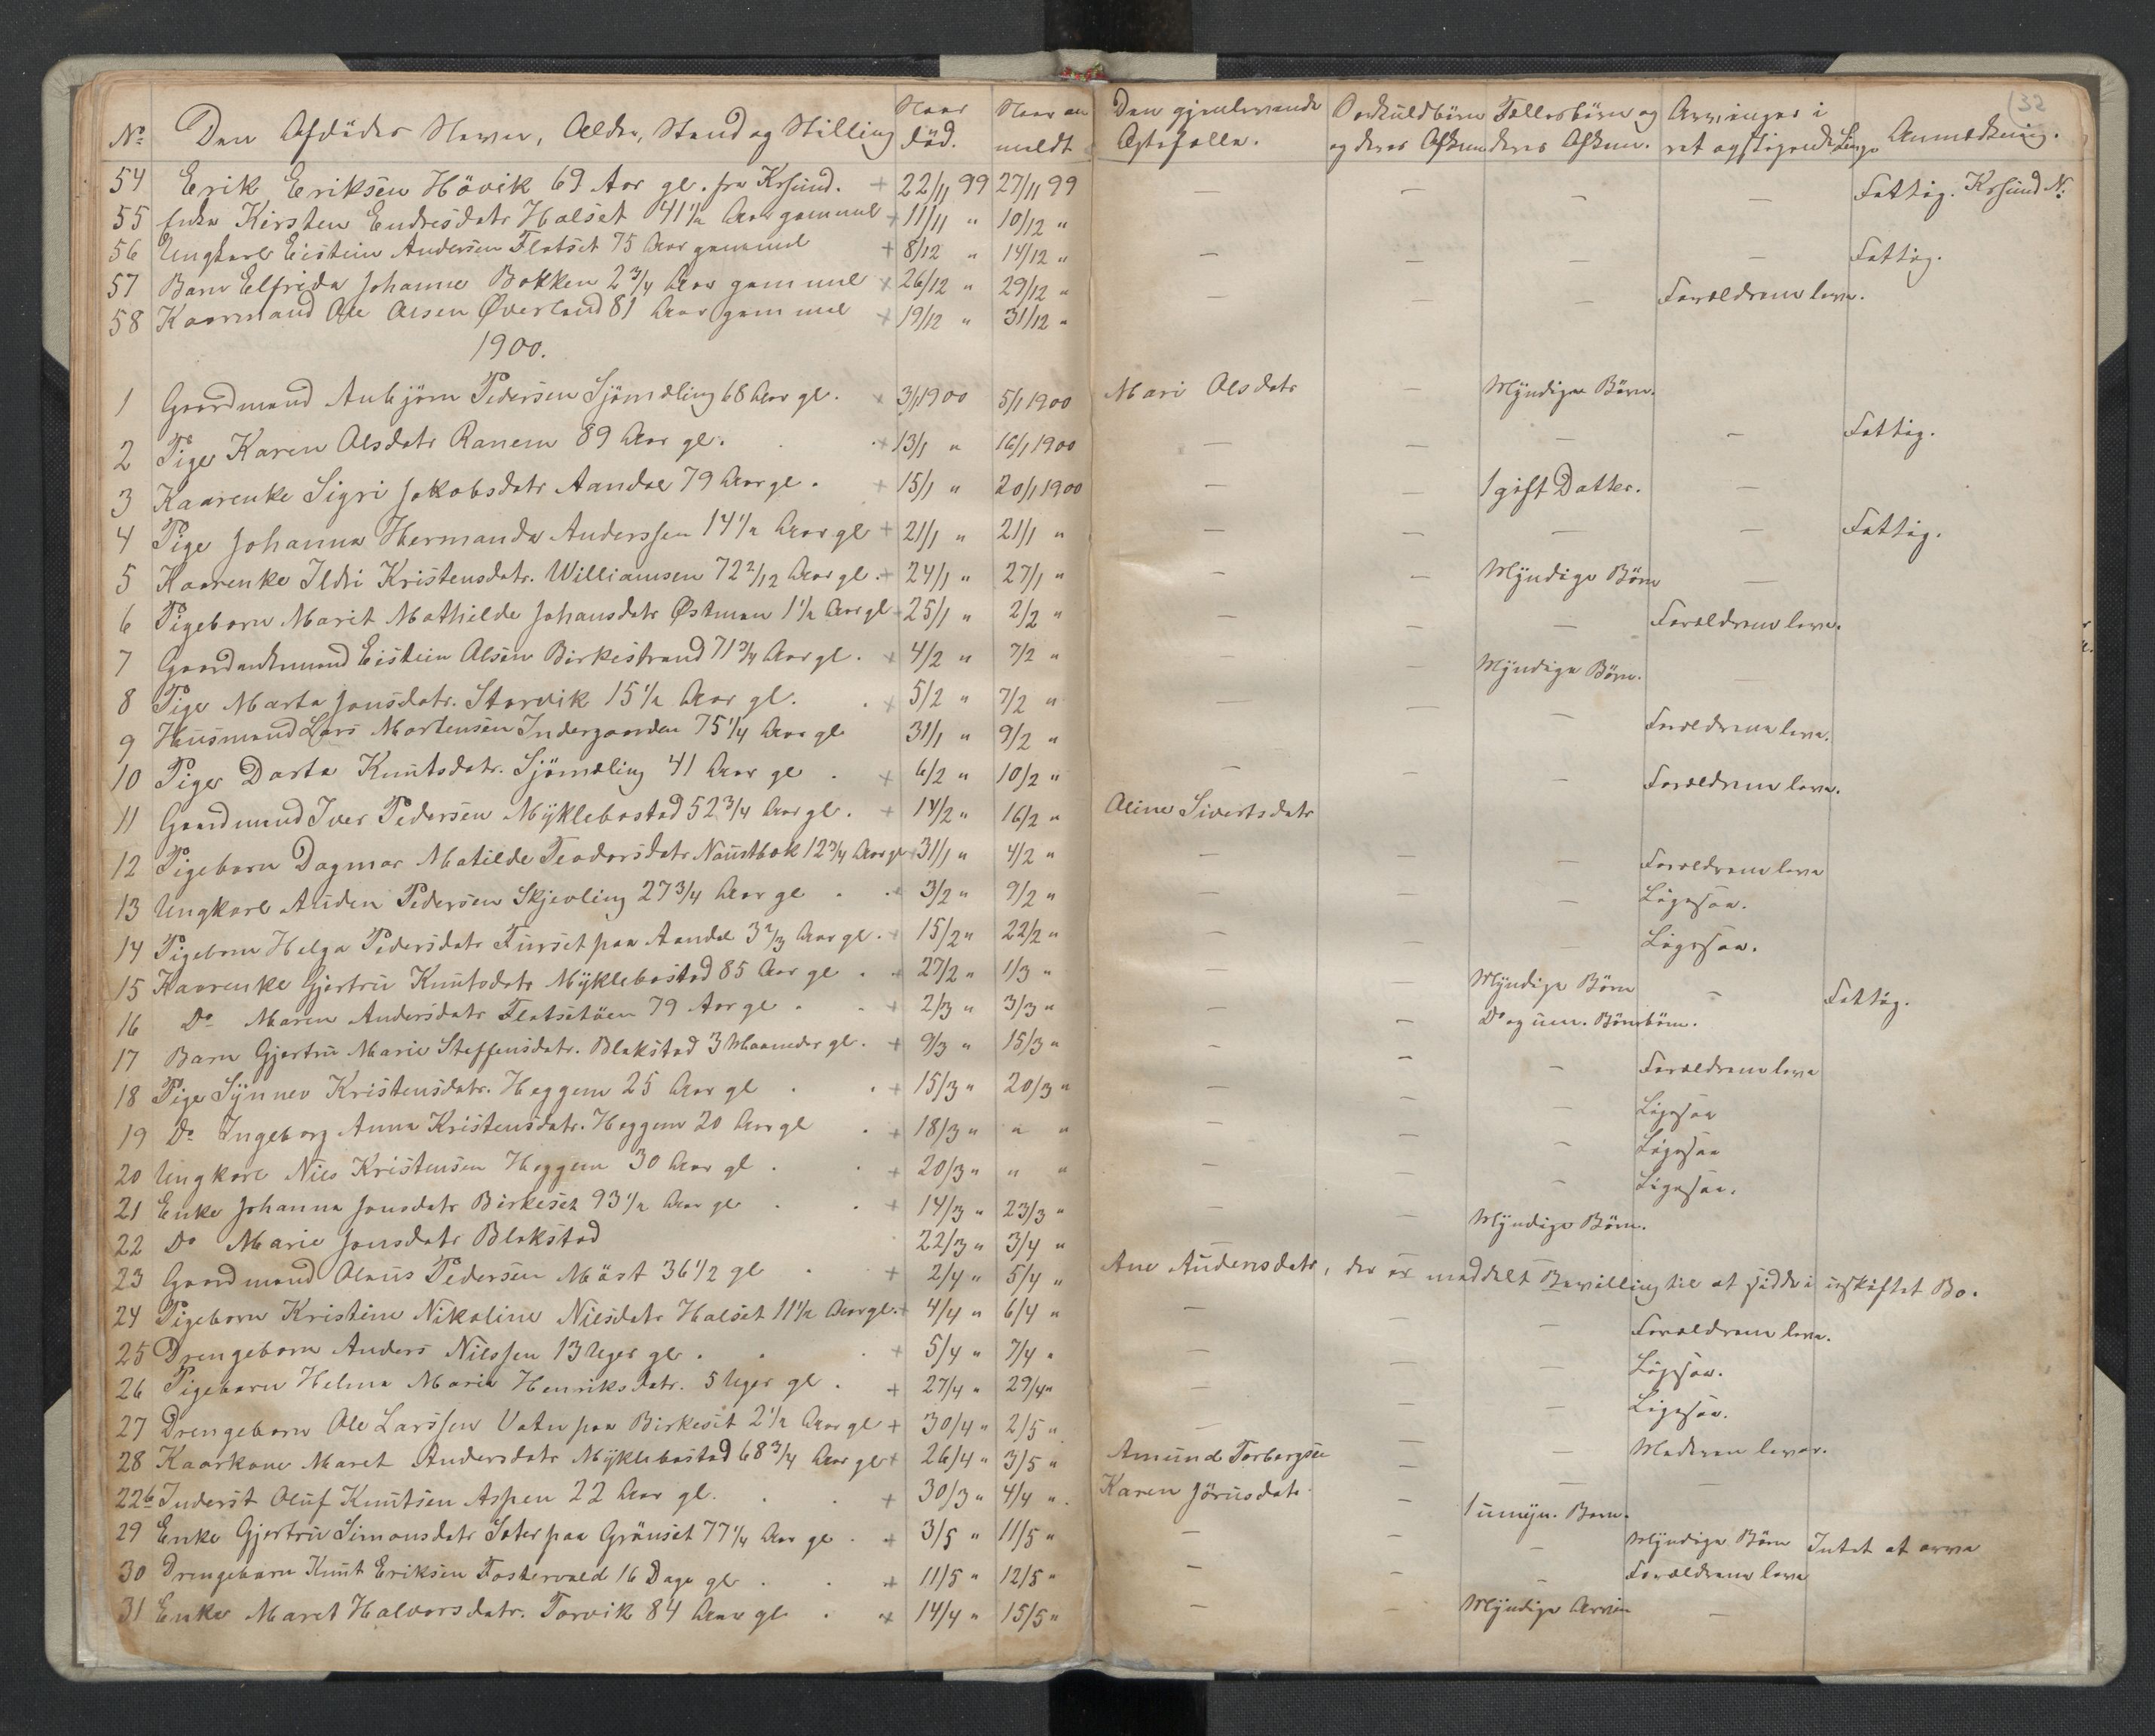 32
No Den Afdødes Navn, Alder, Stand og Stilling Naar død. Naar anmeldt Den gjenlevende Ægtefælle. Særkuldbörn og deres Afkom Fællesbörn og deres Afkom. Arvinger i ret opstigende Linje Anmærkning.
54 Erik Eriksen Hövik 69 Aar gl. fra Krsund. + 22/11 99 27/11 99 — — — — Fattig. Krsund N.
55 Enke Kirsten Endresdatr Halset 41 1/2 Aar gammel + 11/11 " 10/12 "
56 Ungkarl Eistein Andersen Flatset 75 Aar gammel + 8/12 " 14/12 " — — — — Fattig.
57 Barn Elfrida Johanne Bakken 2 3/4 Aar gammel + 26/12 " 29/12 " — — — Forældrene leve.
58 Kaarmand Ole Olsen Øverland 81 Aar gammel + 19/12 " 31/12 "
1900.
1 Gaardmand Anbjörn Pedersen Sjömæling 68 Aar gl. + 3/1 1900 5/1 1900 Mari Olsdatr — Myndige Börn.
2 Pige Karen Olsdatr Ranem 89 Aar gl. + 13/1 " 16/1 1900 — — — — Fattig.
3 Kaarenke Sigri Jakobsdatr Aandal 79 Aar gl. + 15/1 " 20/1 1900 — — 1 gift Datter. —
4 Pige Johanna Hermanda Anderssen 14 1/2 Aar gl + 21/1 " 21/1 " — — — — Fattig.
5 Kaarenke Ildri Kristensdatr. Williamsen 72 2/12 Aar gl. + 24/1 " 27/1 " — — Myndige Börn —
6 Pigebarn Marit Mathilde Johansdatr Østman 1 1/2 Aar gl + 25/1 " 2/2 " — — — Forældrene leve.
7 Eistein Olsen Birkestrand 71 3/4 Aar gl. + 4/2 " 7/2 " — — Myndige Börn. —
8 Pige Marta Jonsdatr. Storvik 15 1/2 Aar gl. + 5/2 " 7/2 " — — — Forældrene leve.
9 Husmand Lars Mortensen Indergaarden 75 1/4 Aar gl 31/1 " 9/2 "
10 Pige Darta Knutsdatr. Sjömæling 41 Aar gl. + 6/2 " 10/2 " — — — Forældrene leve.
11 Gaardmand Iver Pedersen Myklebostad 52 3/4 Aar gl. + 14/2 " 16/2 " Oline Sivertsdatr
12 Pigebarn Dagmar Matilde Teodorsdatr Naustbak 12 3/4 Aar gl + 31/1 " 4/2 " — — — Forældrene leve
13 Ungkarl Auden Pedersen Skjevling 27 3/4 Aar gl. + 3/2 " 9/2 " — — — Ligesaa.
14 Pigebarn Helga Pedersdatr Furset paa Aandal 3 2/3 Aar gl. + 15/2 " 22/2 " — — — Ligesaa.
15 Kaarenke Gjertru Knutsdatr Myklebostad 85 Aar gl. + 27/2 " 1/3 " — — Myndige Börn — Fattig.
16 Do Maren Andersdatr Flatsetöen 79 Aar gl. + 2/3 " 3/3 " — — Do og um. Börnebörn.
17 Barn Gjertru Marie Steffensdatr. Blakstad 3 Maaneder gl. + 9/3 " 15/3 " — — — Forældrene leve
18 Pige Synnev Kristensdatr. Heggem 25 Aar gl. + 15/3 " 20/3 " — — — Ligesaa
19 Do Ingeborg Anna Kristensdatr. Heggem 20 Aar gl. + 18/3 " " " — — — Ligesaa
20 Ungkarl Nils Kristensen Heggem 30 Aar gl. + 20/3 " " " — — — Ligesaa.
21 Enke Johanna Jonsdatr Birkeset 93 1/2 Aar gl. + 14/3 " 23/3 " — — Myndige Börn.
22 Do Marie Jonsdatr Blakstad 22/3 " 3/4 "
23 Gaardmand Olaus Pedersen Möst 36 1/2 gl. + 2/4 " 5/4 " Ane Audensdatr, der er meddelt Bevilling til at sidde i uskiftet Bo.
24 Pigebarn Kristine Nikoline Nilsdatr Halset 11 1/2 Aar gl. + 4/4 " 6/4 " — — — Forældrene leve.
25 Drengebarn Anders Nilssen 13 Uger gl. + 5/4 " 7/4 " — — — Ligesaa.
26 Pigebarn Helma Maria Henriksdatr. 5 Uger gl. + 27/4 " 29/4 " — — — Ligesaa.
27 Drengebarn Ole Larssen Vatn paa Birkeset 2 1/2 Aar gl + 30/4 " 2/5 " — — — Moderen lever.
28 Kaarkone Maret Andersdatr Myklebostad 68 3/4 Aar gl + 26/4 " 3/5 " Amund Torbergsen — — —
22b Inderst Oluf Knutsen Aspen 22 Aar gl. + 30/3 " 4/4 ". Karen Jörusdatr. — 1 umyn. Barn.
29 Enke Gjertru Simonsdatr Sater paa Grönset 77 1/4 Aar gl. + 3/5 " 11/5 " — — — Myndige Börn Intet at arve
30 Drengebarn Knut Eriksen Fostervold 16 Dage gl. + 11/5 " 12/5 " — — — Forældrene leve
31 Enke Maret Halvorsdatr. Torvik 84 Aar gl. + 14/4 " 15/5 " — — Myndige Arvin —